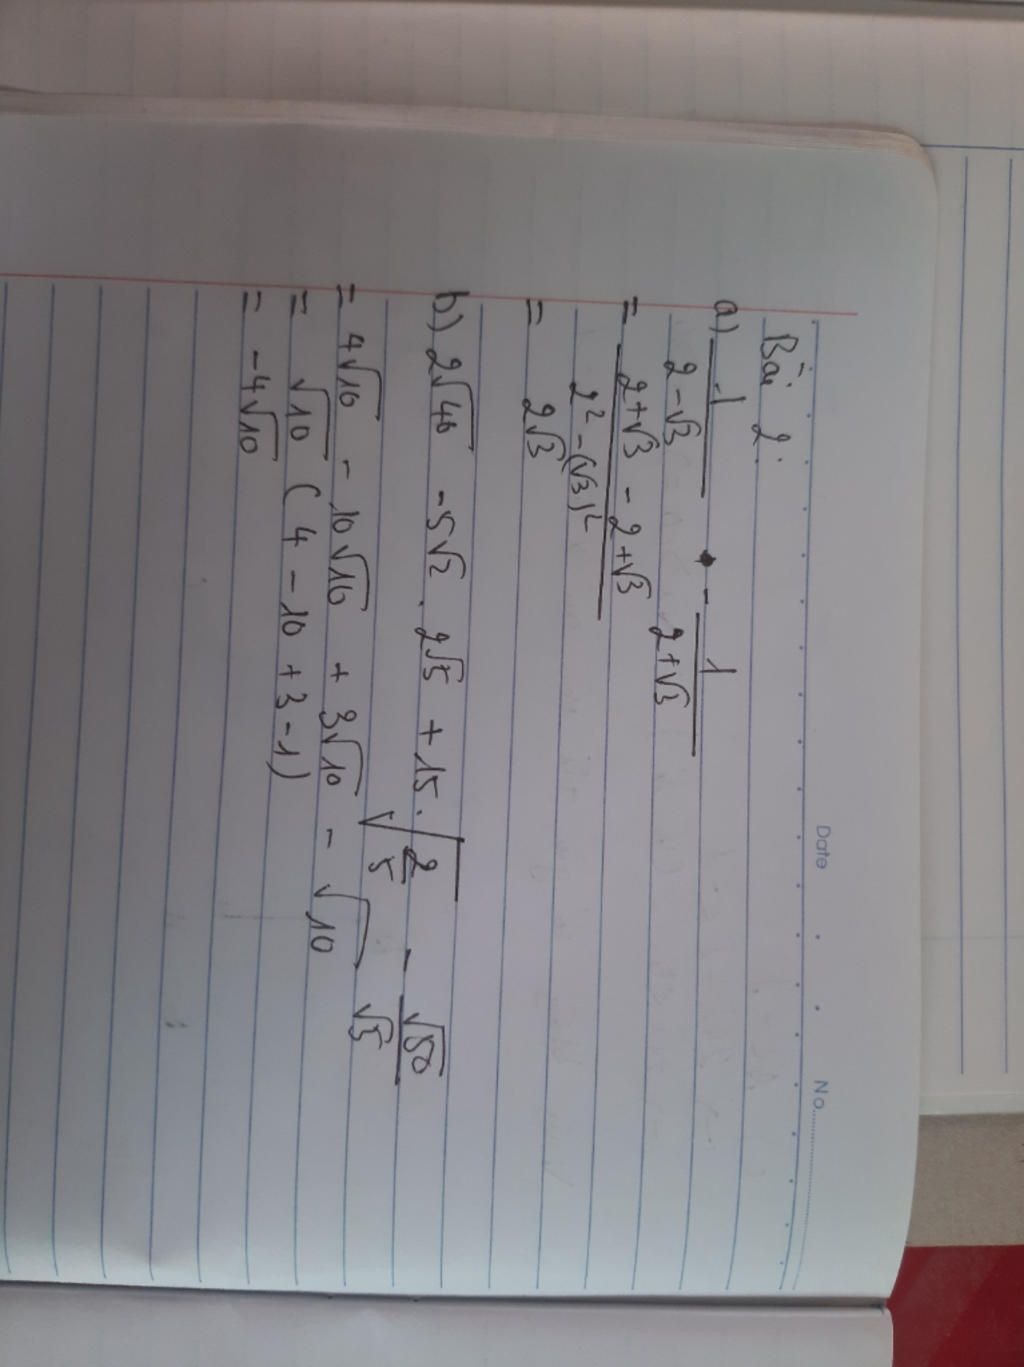 Date No.
Bài 2.
a) 1/(2-√3) - 1/(2+√3)
= (2+√3 - 2+√3)/(2² - (√3)²)
= 2√3
b) 2√40 - 5√2 . 2√5 + 15 . √(2/5) - √50/√5
= 4√10 - 10√10 + 3√10 - √10
= √10 ( 4 - 10 + 3 - 1 )
= -4√10